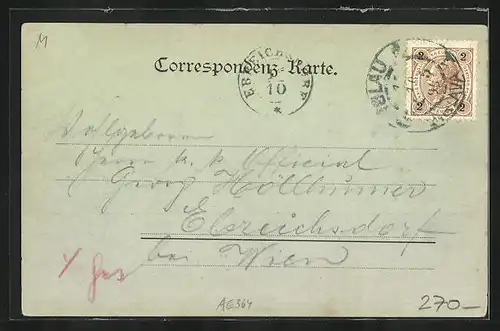 M
Correspondenz-Karte.
EBREICHSDORF
10
IGLAU
2 2
2 2
Wohlgeboren
Herrn k. k. Official
Georg Höllhumer
Ebreichsdorf
bei Wien
AG364
270.-